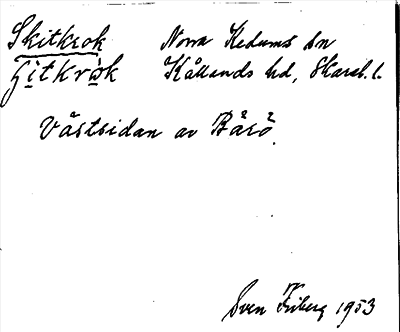 Skitkrok Norra Kedums sn
Kållands hd, Skarab. l.
Västsidan av Bårö.
Sven Friberg 1953